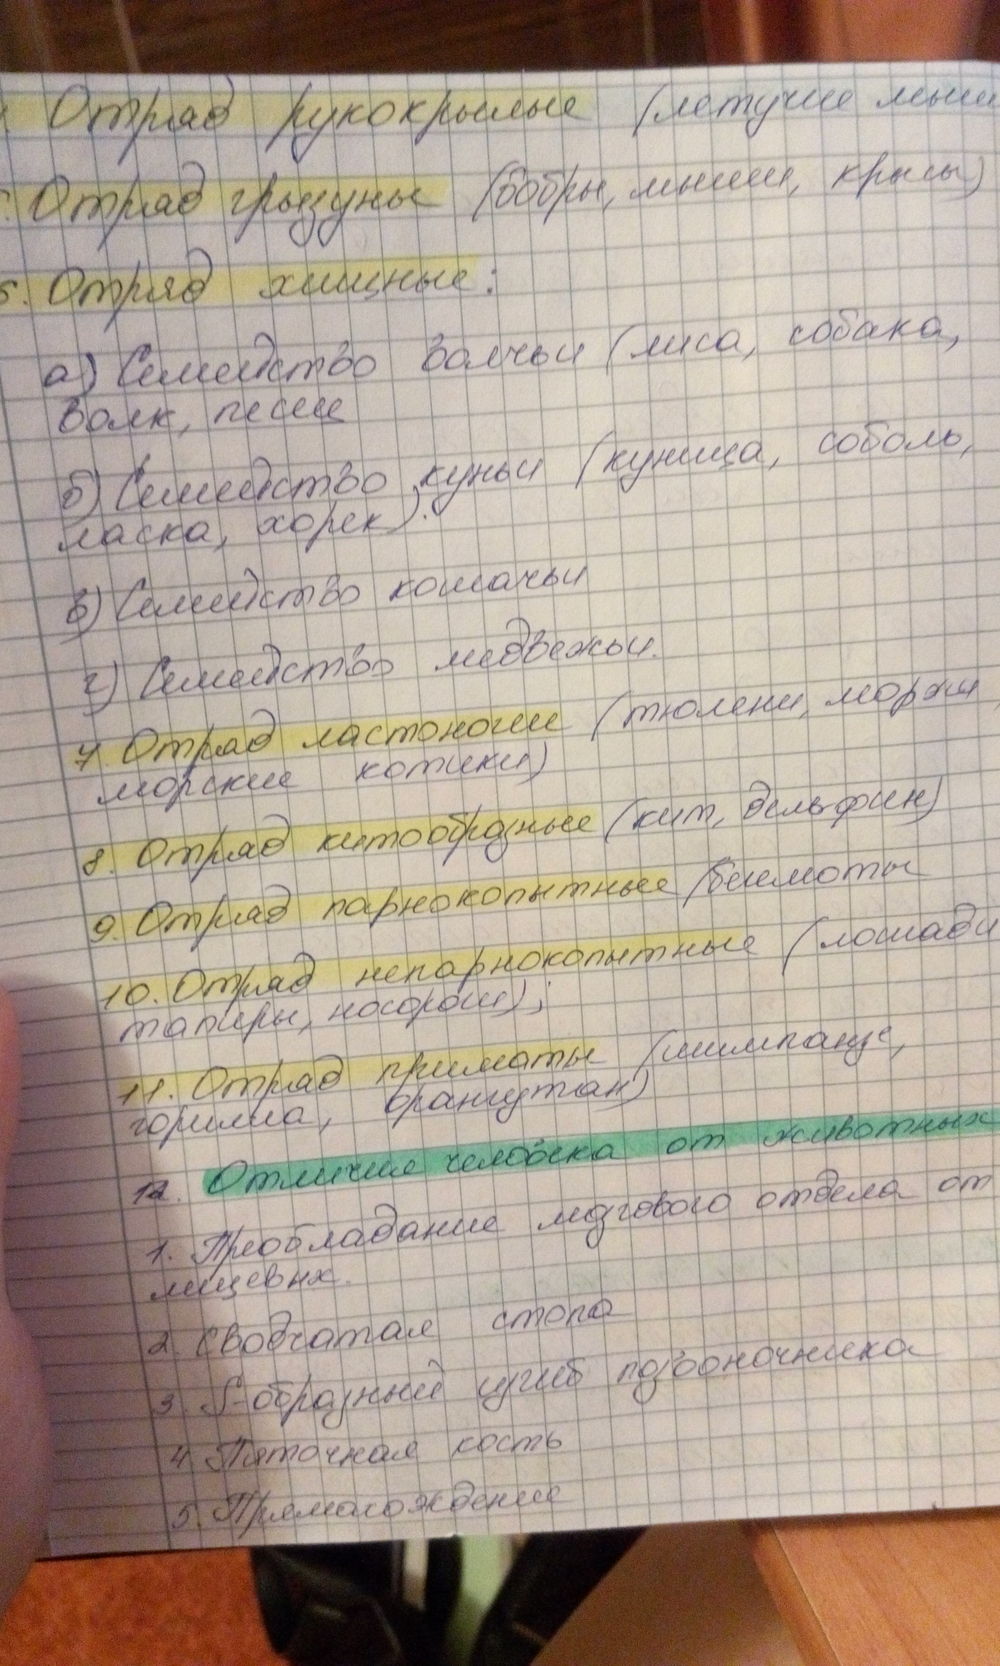 Отряд рукокрылые (летучие мыши
Отряд грызуны (бобры, мыши, крысы)
6. Отряд хищные:
а) Семейство волчьи (лиса, собака,
волк, песец
б) Семейство куньи (куница, соболь,
ласка, хорек).
в) Семейство кошачьи
г) Семейство медвежьи.
7. Отряд ластоногие (тюлени, моржи,
морские котики)
8. Отряд китообразные (кит, дельфин)
9. Отряд парнокопытные (бегемоты
10. Отряд непарнокопытные (лошади
тапиры, носороги);
11. Отряд приматы (шимпанзе,
горилла, орангутан)
12. Отличие человека от животных
1. Преобладание мозгового отдела от
лицевых.
2. Сводчатая стопа
3. S-образный изгиб позвоночника
4. Пяточная кость
5. Прямохождение